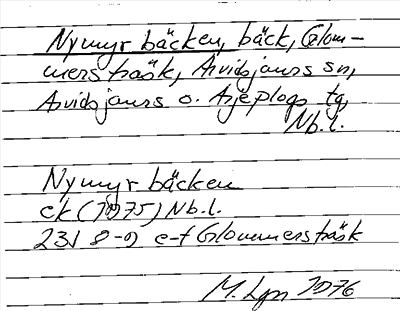 Nymyrbäcken, bäck, Glom-
mersträsk, Arvidsjaurs sn,
Arvidsjaurs o. Arjeplogs tg,
Nb.l.
Nymyrbäcken
ek (1975) Nb.l.
23I 8-9 e-f Glommersträsk
M. Lgn 1976